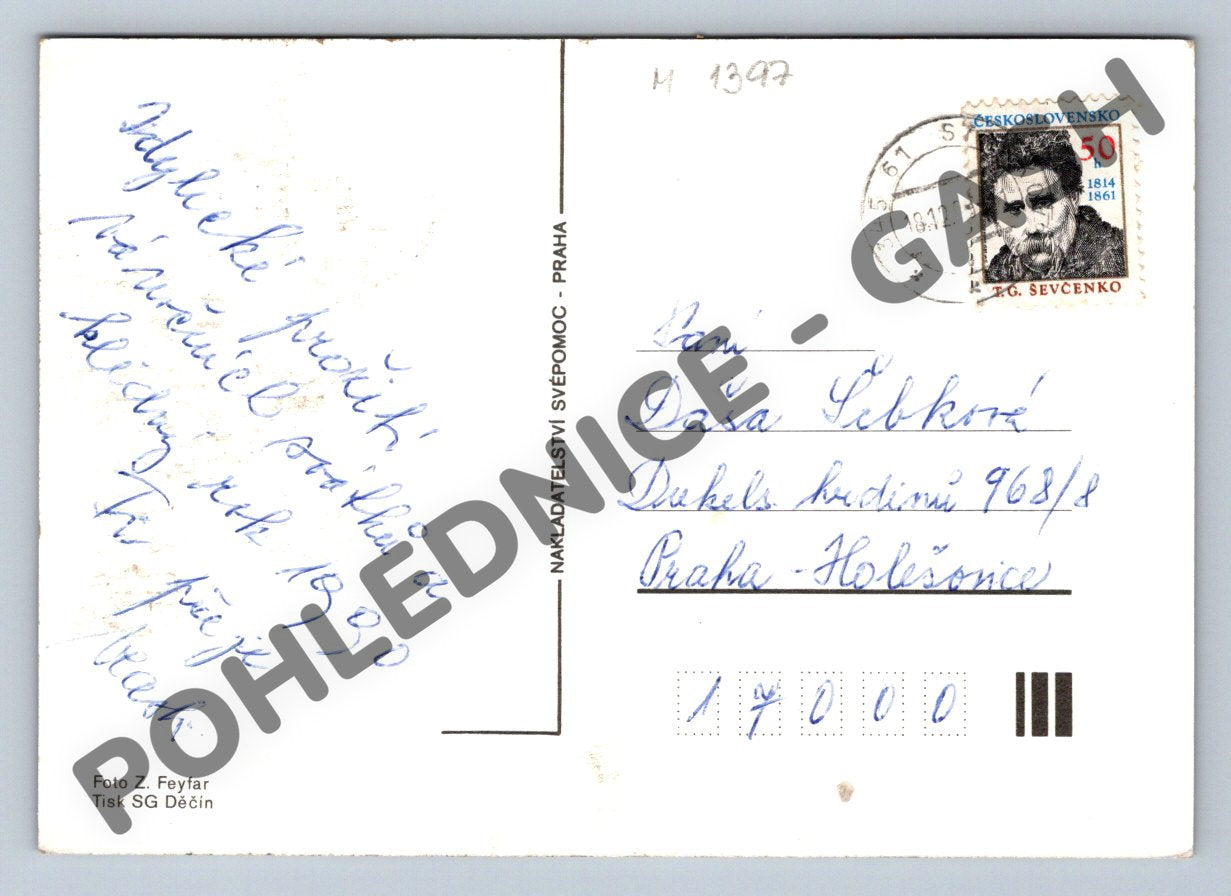 M 1397
ČESKOSLOVENSKO
50
h
1814
1861
T.G. ŠEVČENKO
561
18.12.
Idylické prožití
vánočních svátků a
klidný rok 1990
Ti přeje
NAKLADATELSTVÍ SVÉPOMOC - PRAHA
Paní
Daša Šebková
Dukels. hrdinů 968/8
Praha - Holešovice
17000
Foto Z. Feyfar
Tisk SG Děčín
POHLEDNICE - GA H